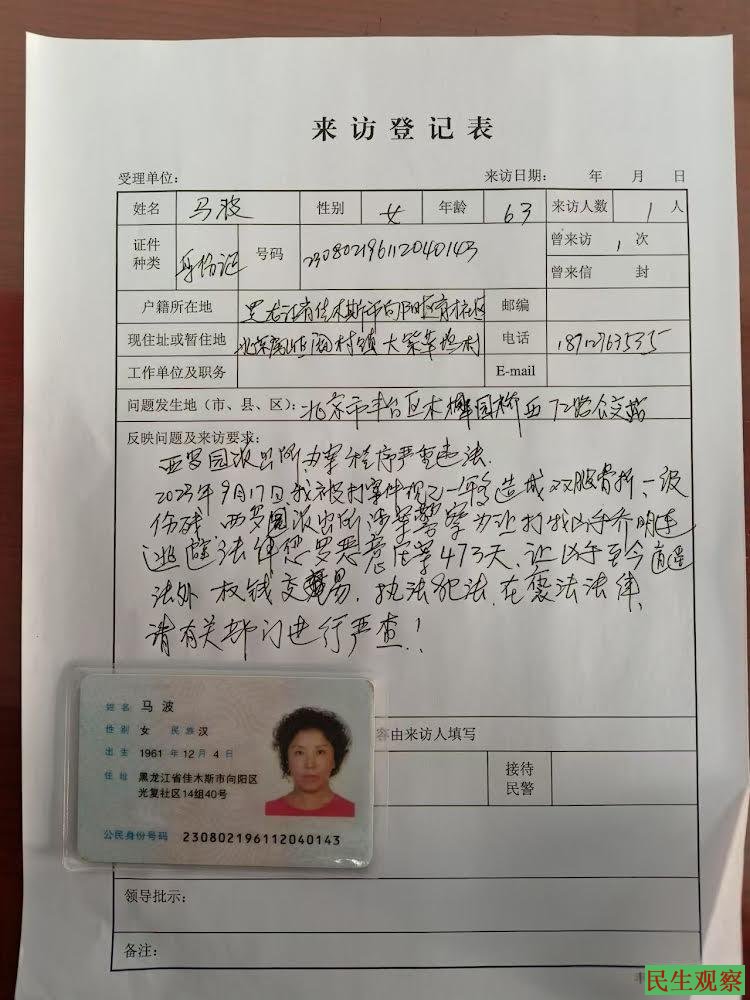 来访登记表
受理单位： 来访日期： 年 月 日
姓名 马波 性别 女 年龄 63 来访人数 1 人
证件种类 身份证 号码 230802196112040143 曾来访 1 次
曾来信 封
户籍所在地 黑龙江省佳木斯市向阳区 社区 邮编
现住址或暂住地 北京房山区阎村镇大紫草坞村 电话 18727635535
工作单位及职务 E-mail
问题发生地（市、县、区）：北京市丰台区木樨园桥西72路公交站
反映问题及来访要求：
西罗园派出所办案程序严重违法.
2023年9月17日我被打案件现已一年 造成双股骨折、一级
伤残 西罗园派出所涉案警察为让打我凶手乔明连
逃避法律 罗恶意 473天,让凶手至今逍遥
法外 权钱交易,执法犯法,在 法法律,
请有关部门进行严查!!
容由来访人填写
接待民警
领导批示：
备注：
姓名 马波
性别 女 民族 汉
出生 1961 年 12 月 4 日
住址 黑龙江省佳木斯市向阳区
光复社区14组40号
公民身份号码 230802196112040143
民生观察